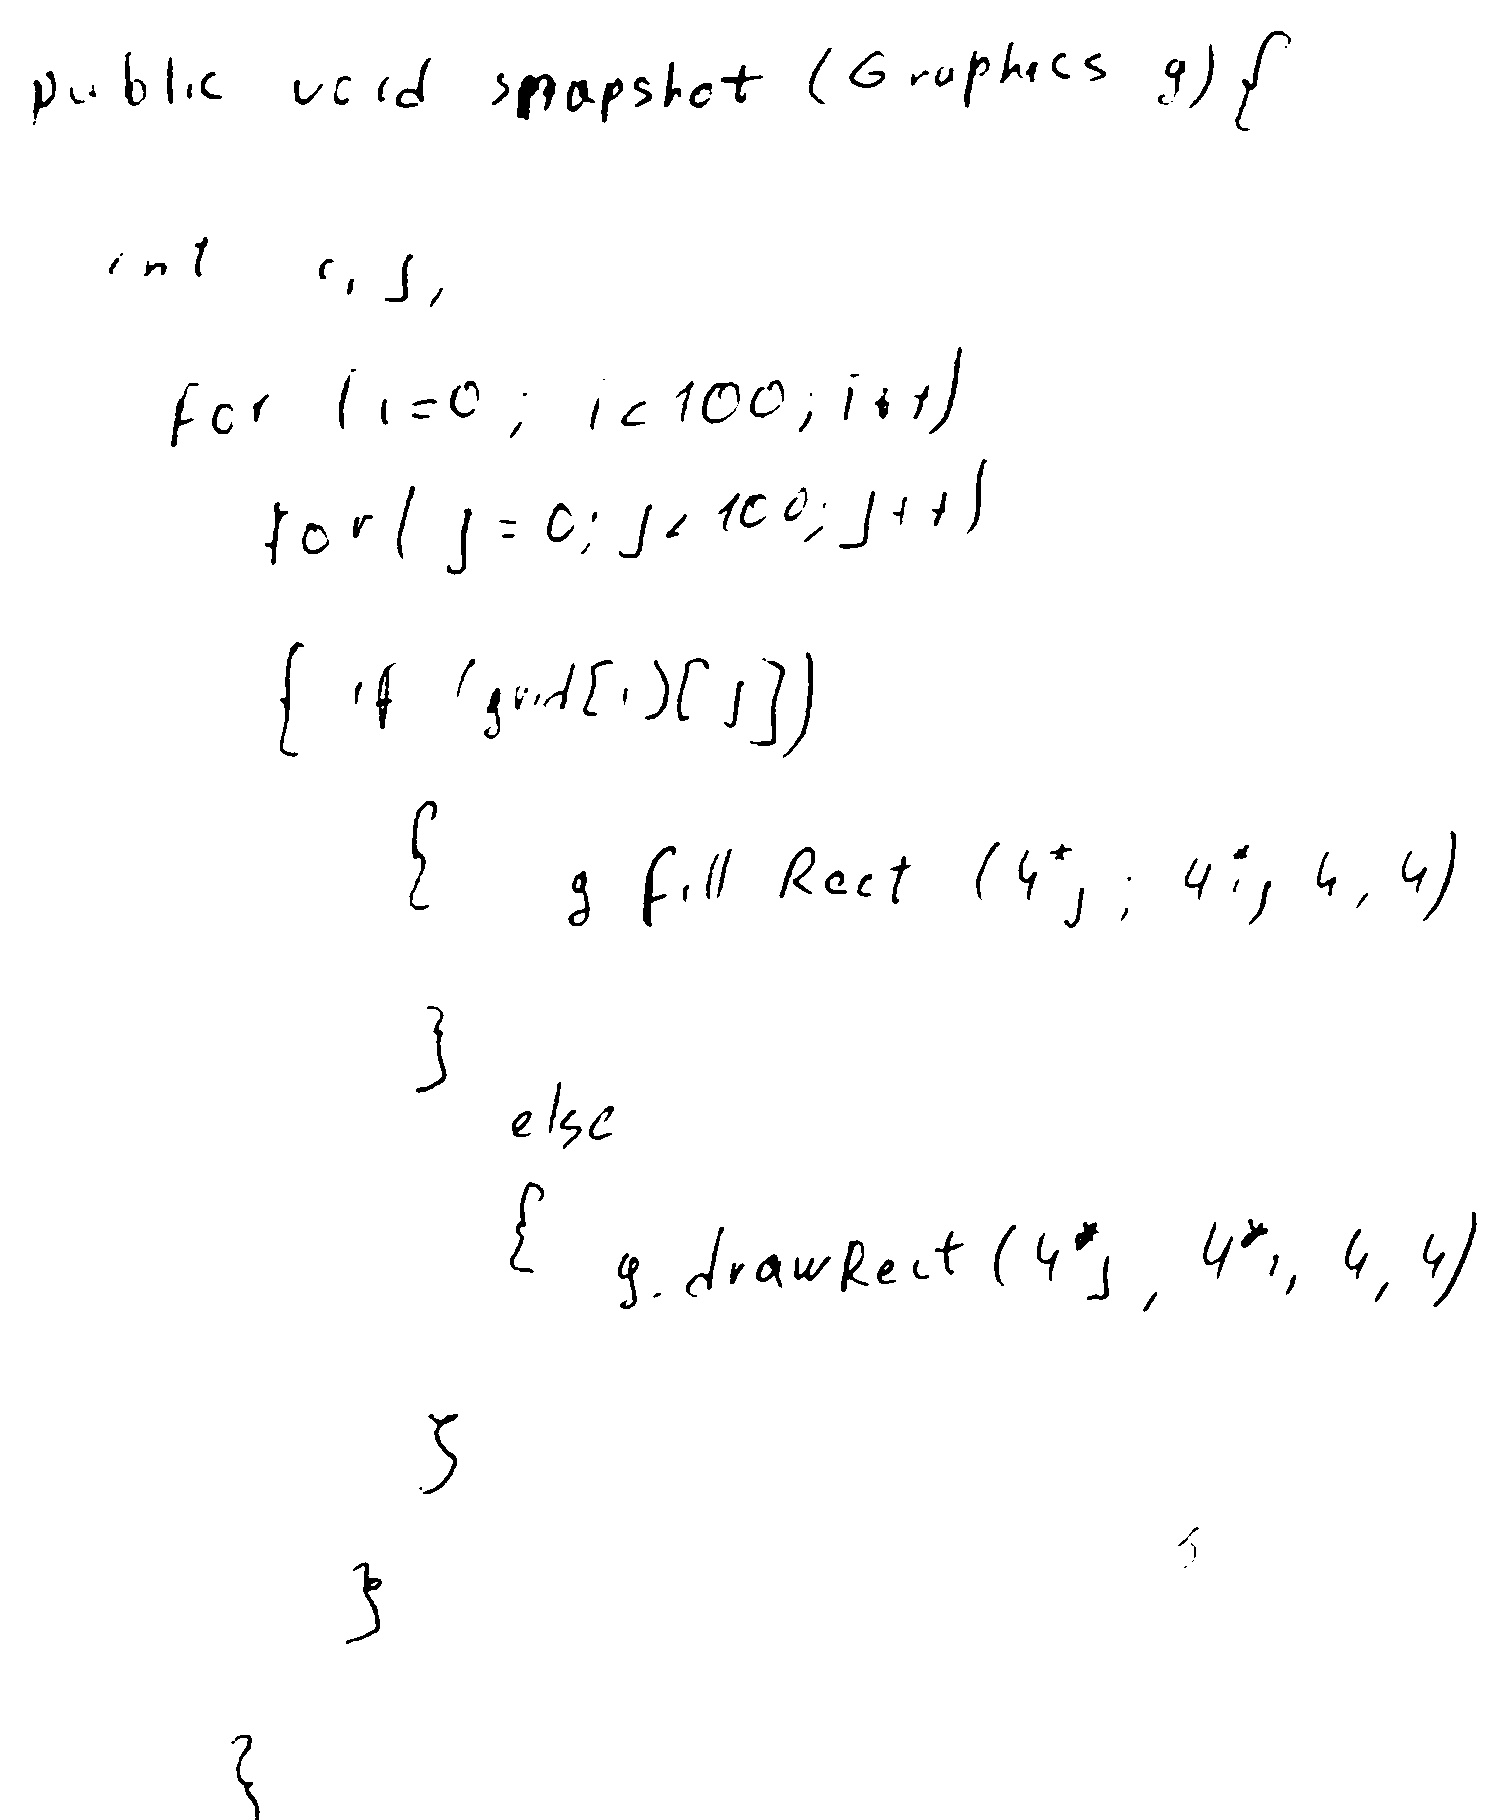 public void snapshot (Graphics g) {
int i, j,
for (i=0; i<100; i++)
for( j=0; j<100; j++)
{ if (grid[i)[j])
{ g fill Rect (4*j; 4*i, 4, 4)
}
else
{ g.drawRect (4*j, 4*i, 4, 4)
}
}
}